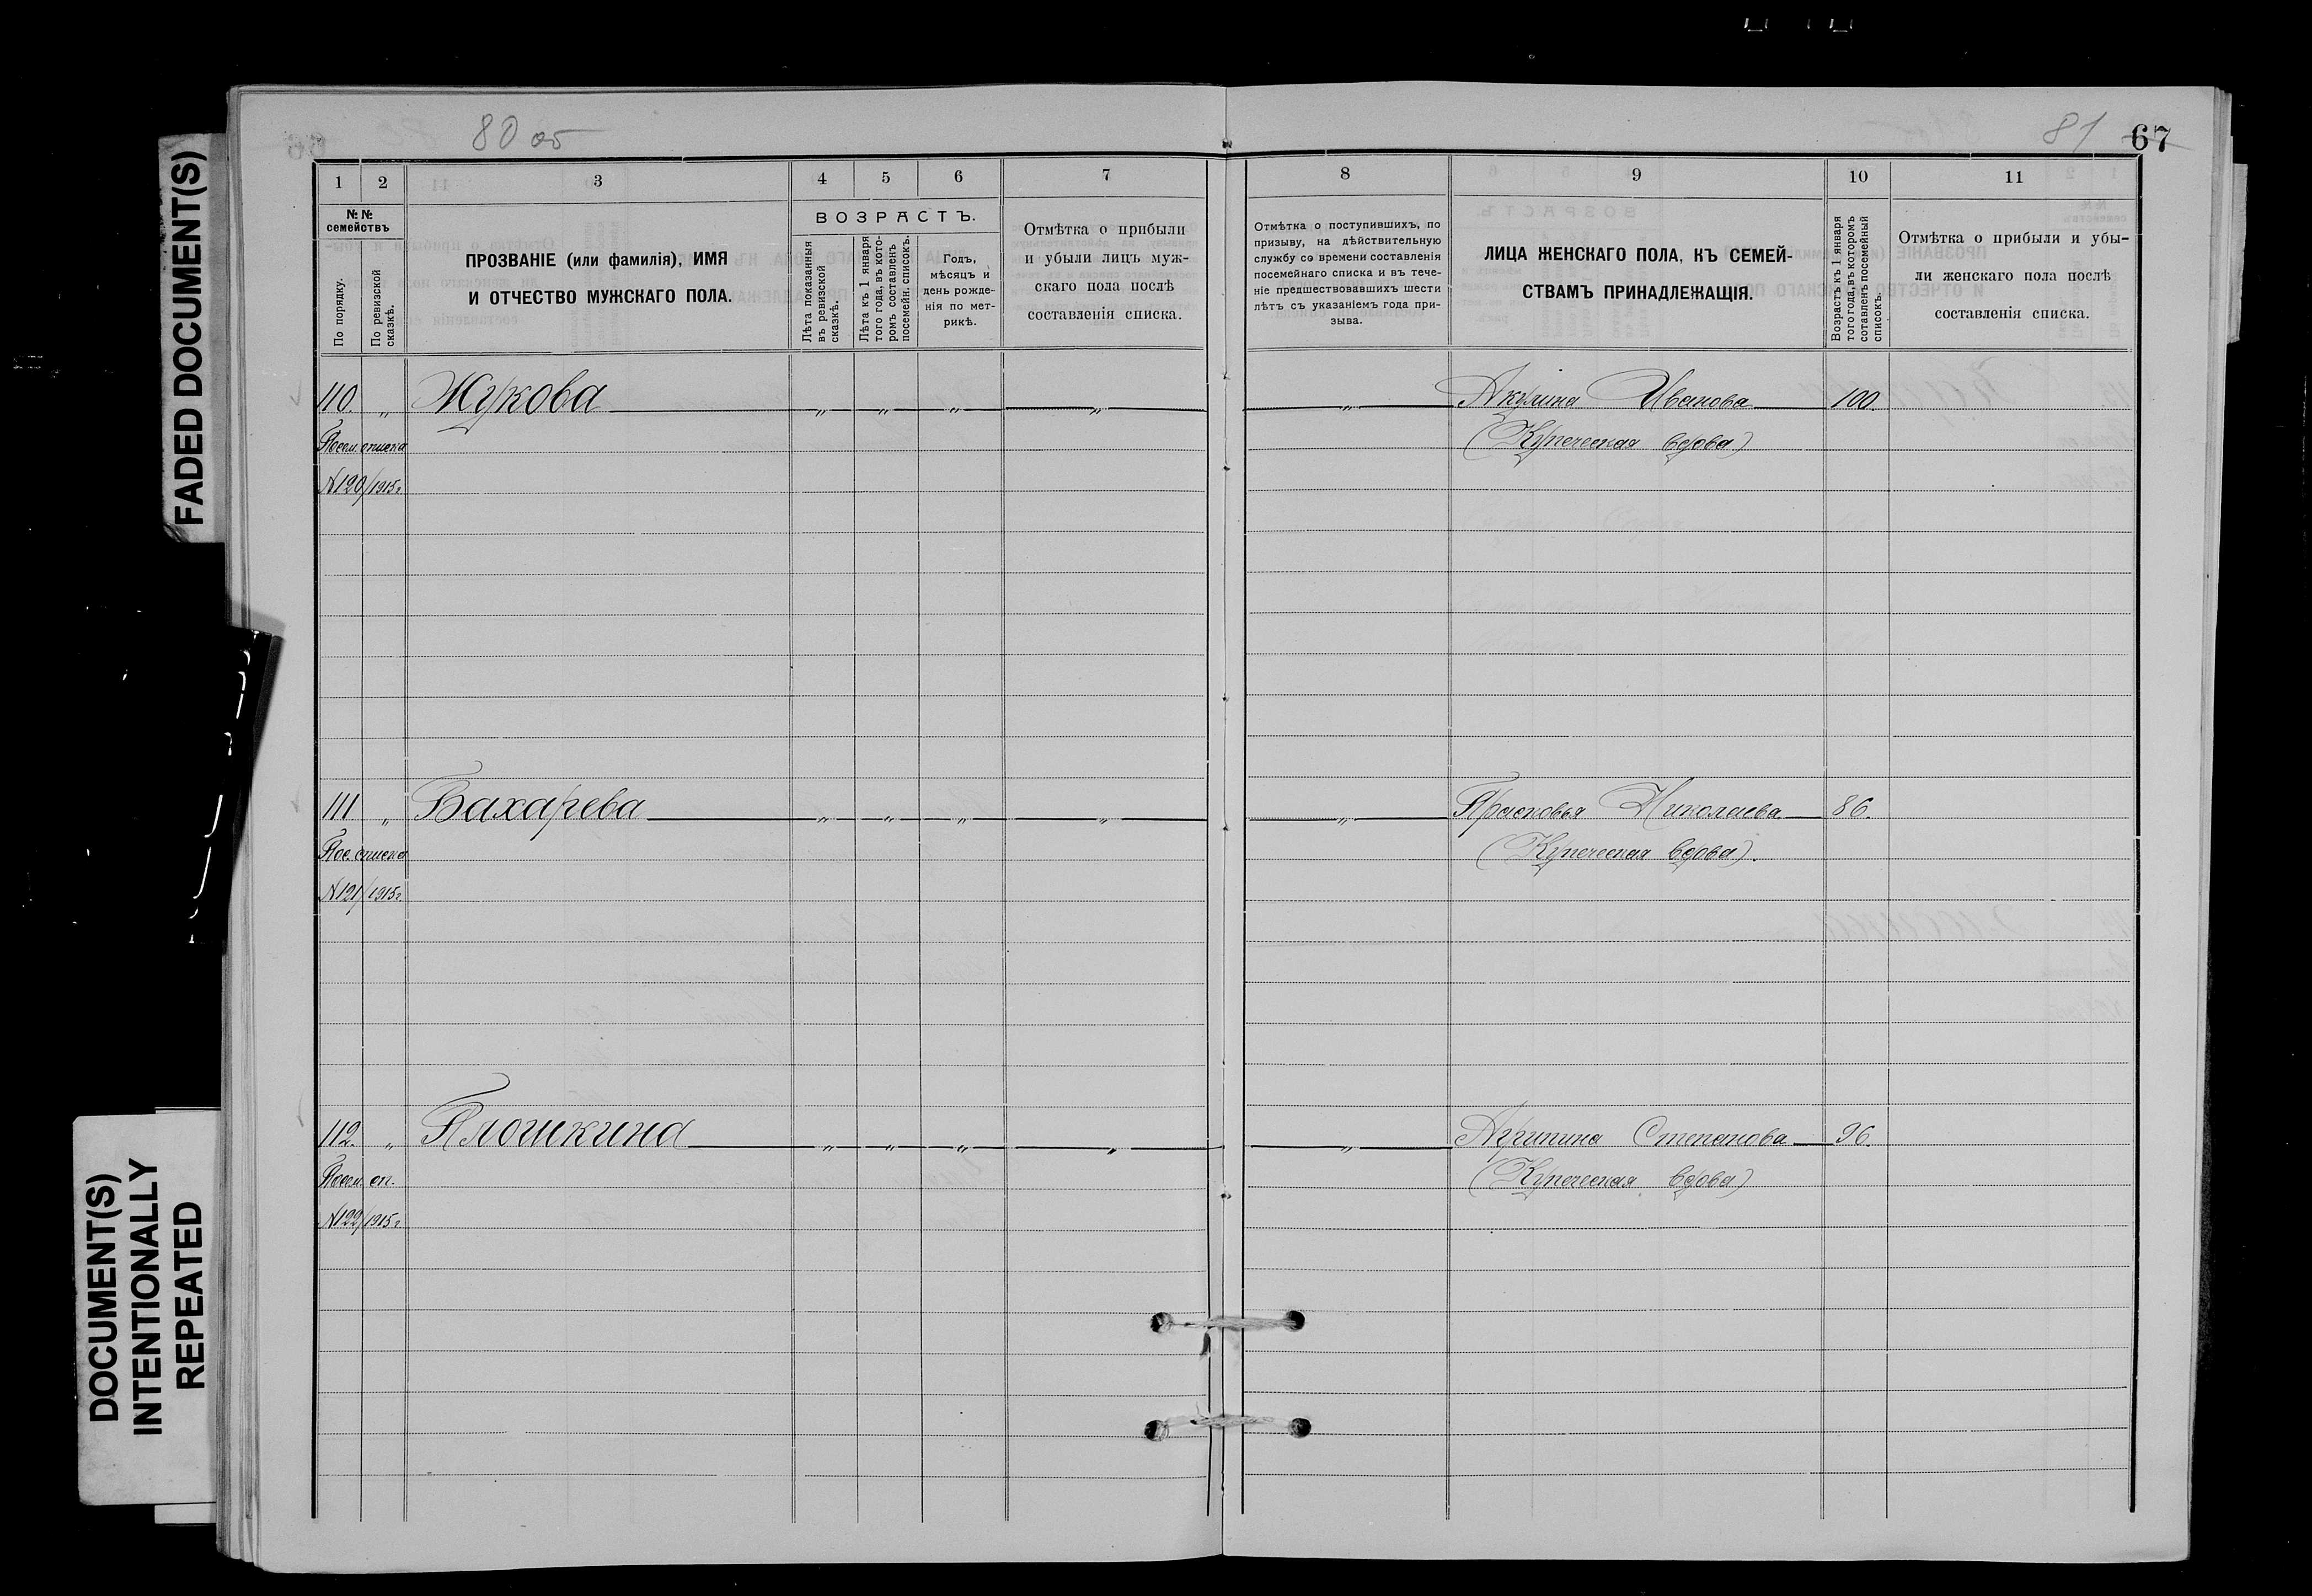 FADED DOCUMENT(S)
DOCUMENT(S)
INTENTIONALLY
REPEATED
80 об
81 67
1 2 3 4 5 6 7
№№ семействъ
По порядку.
По ревизской сказкѣ.
ПРОЗВАНІЕ (или фамилія), ИМЯ
И ОТЧЕСТВО МУЖСКАГО ПОЛА.
ВОЗРАСТЪ.
Лѣта показанныя въ ревизской сказкѣ.
Лѣта къ 1 января того года, въ кото-ромъ составленъ посемейн. списокъ.
Годъ,
мѣсяцъ и
день рожде-
нія по мет-
рикѣ.
Отмѣтка о прибыли
и убыли лицъ муж-
скаго пола послѣ
составленія списка.
8 9 10 11
Отмѣтка о поступившихъ, по
призыву, на дѣйствительную
службу со времени составленія
посемейнаго списка и въ тече-
ніе предшествовавшихъ шести
лѣтъ съ указаніемъ года при-
зыва.
ЛИЦА ЖЕНСКАГО ПОЛА, КЪ СЕМЕЙ-
СТВАМЪ ПРИНАДЛЕЖАЩІЯ.
Возрастъ къ 1 января
того года, въ которомъ
сотавленъ посемейный
списокъ.
Отмѣтка о прибыли и убы-
ли женскаго пола послѣ
составленія списка.
110. „ Жукова „ „ „ „ „ Акулина Иванова 100.
Посем. списка (Купеческая вдова)
№120/1915 г
111 „ Бахарева „ „ „ „ „ Прасковья Николаева 86.
Пос. списка (Купеческая вдова).
№121/1915 г.
112. „ Плошкина „ „ „ „ „ Агрипина Степанова 96.
Посем. сп. (Купеческая вдова)
№122/1915 г